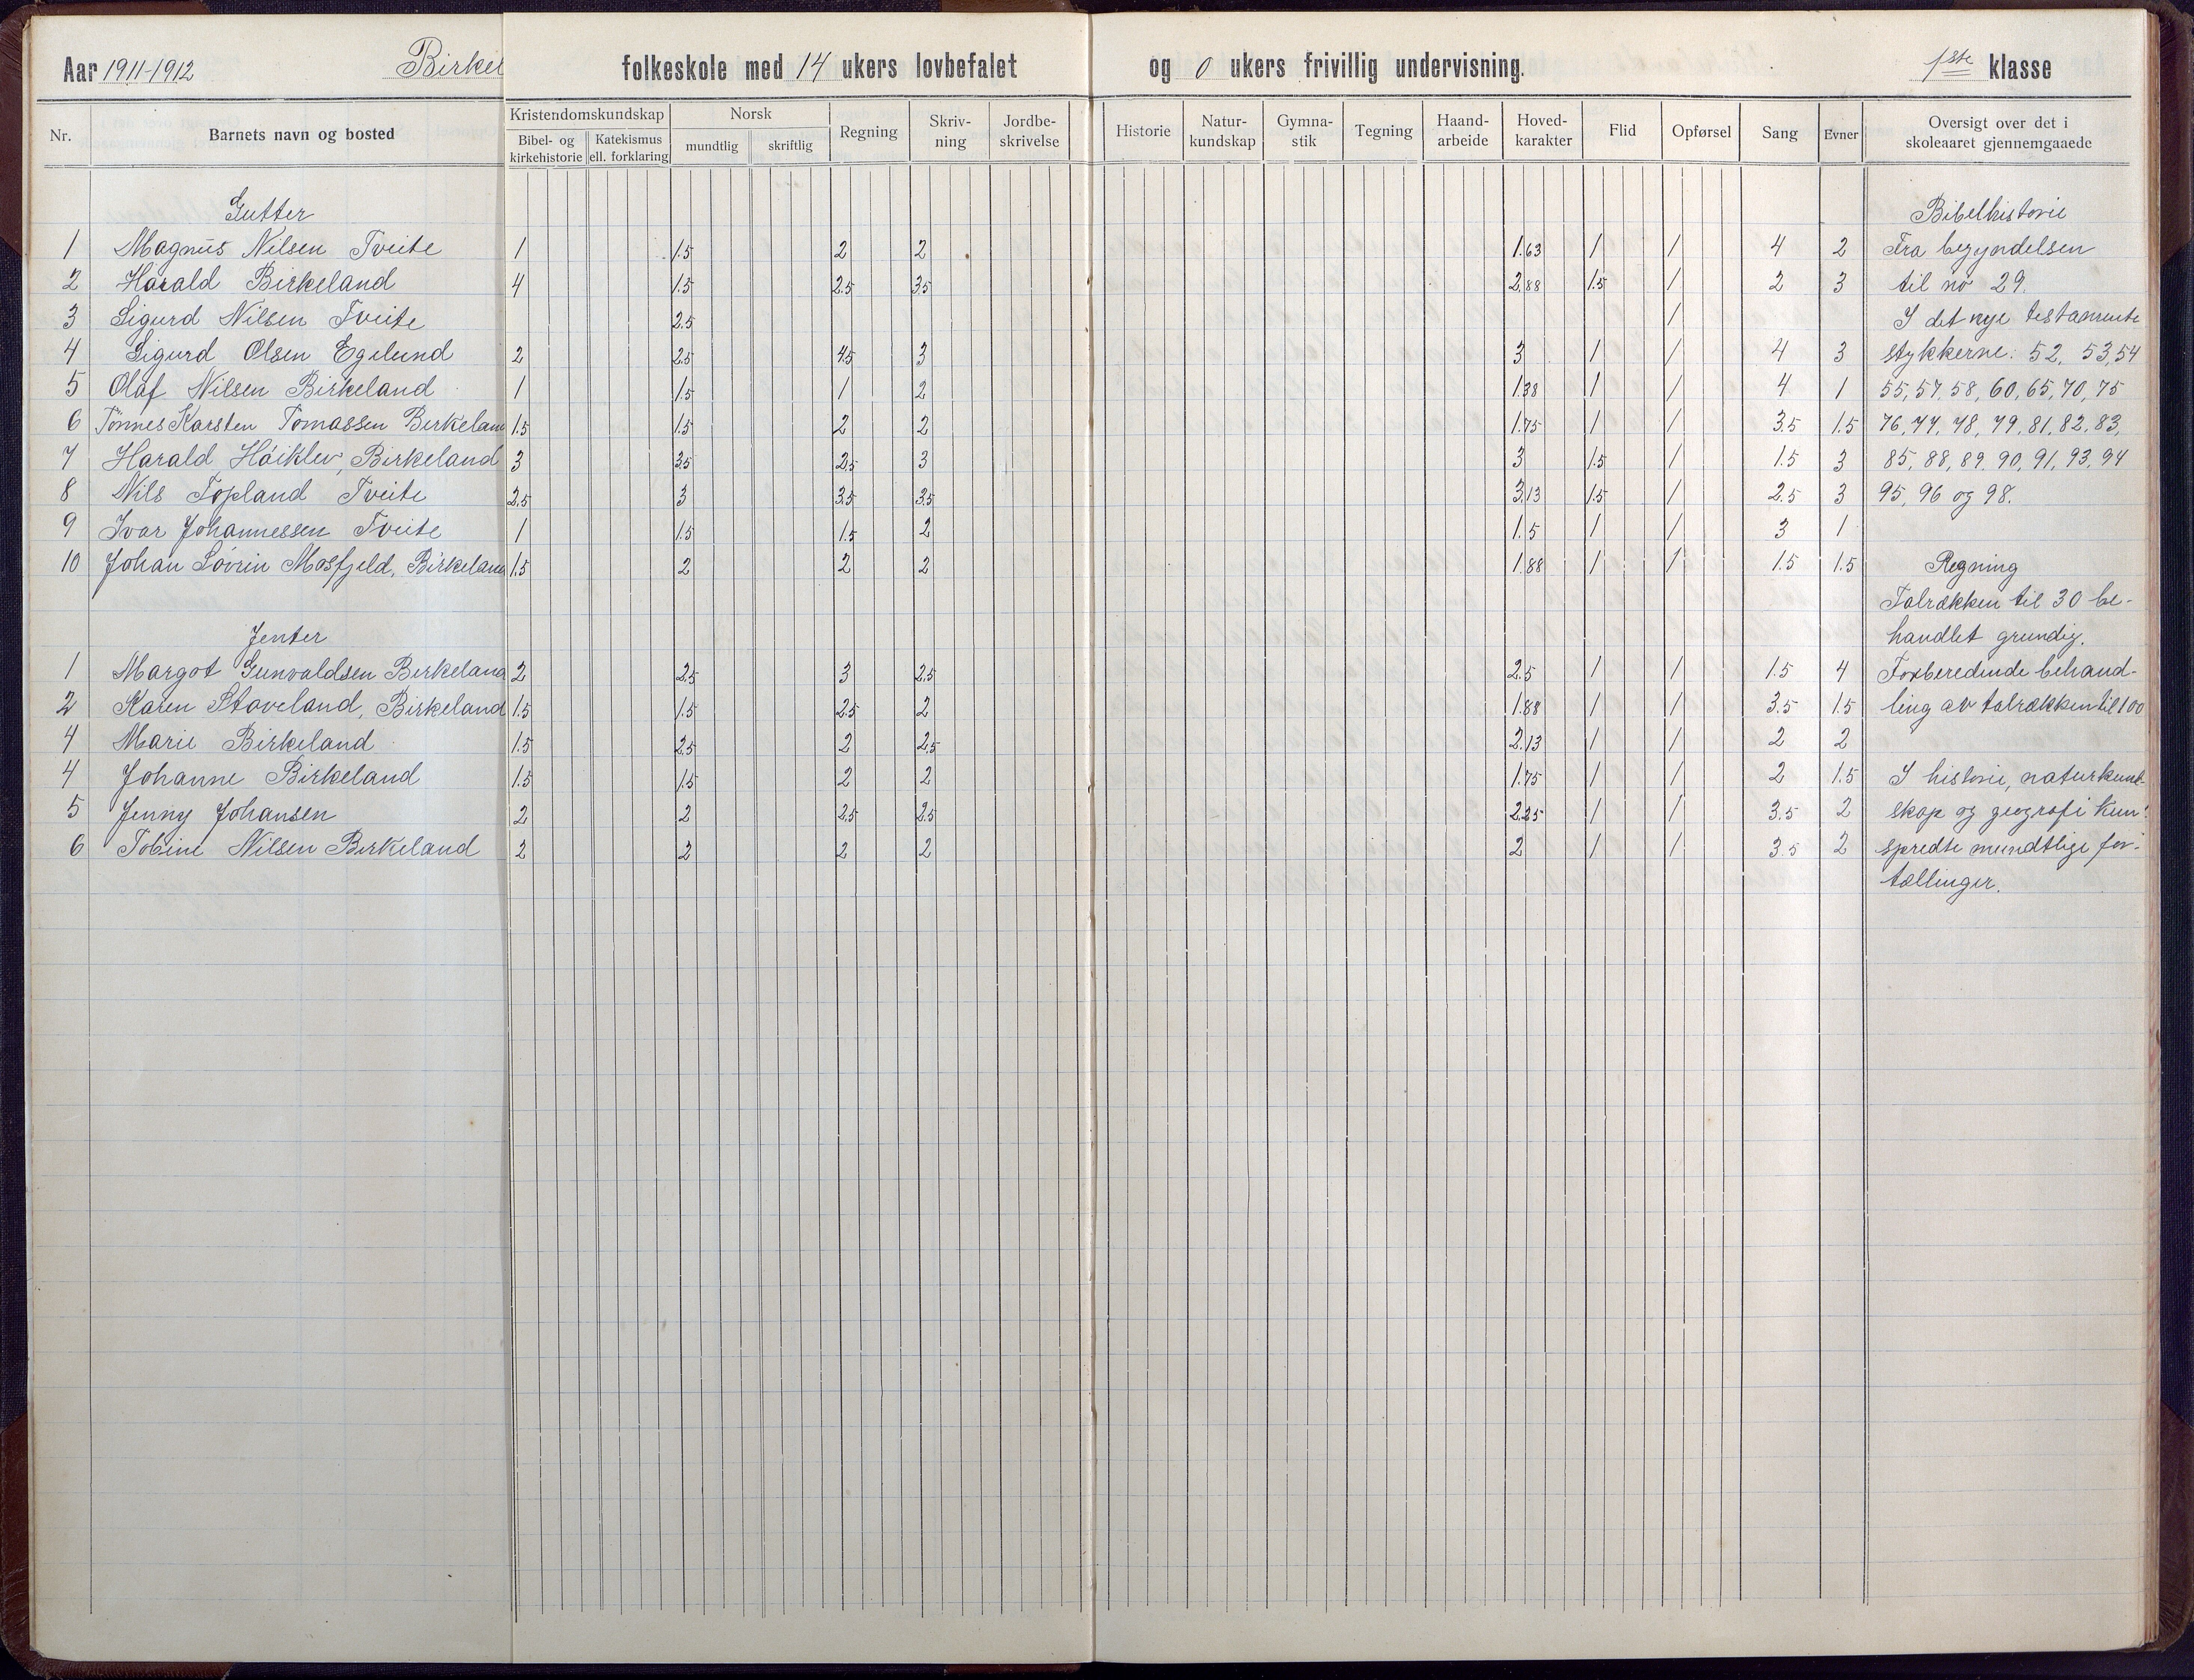 Aar 1911-1912 Birkel folkeskole med 14 ukers lovbefalet og 0 ukers frivillig undervisning. 1ste klasse
Nr. Barnets navn og bosted Kristendomskundskap Bibel- og kirkehistorie Katekismus ell. forklaring Norsk mundtlig skriftlig Regning Skriv-ning Jordbe-skrivelse Historie Natur-kundskap Gymna-stik Tegning Haand-arbeide Hoved-karakter Flid Opførsel Sang Evner Oversigt over det i skoleaaret gjennemgaaede
Gutter Bibelhistorie
1 Magnus Nilsen Tveite 1 1.5 2 2 1.63 1 1 4 2 Fra begyndelsen
2 Harald Birkeland 4 1.5 2.5 3.5 2.88 1.5 1 2 3 til no 29.
3 Sigurd Nilsen Tveite 2.5 1 I det nye testamente
4 Sigurd Olsen Egelund 2 2.5 4.5 3 3 1 1 4 3 stykkerne: 52, 53, 54
5 Olaf Nilsen Birkeland 1 1.5 1 2 1.38 1 1 4 1 55, 57, 58, 60, 65, 70, 75
6 Tønnes Karsten Tomassen Birkeland 1.5 1.5 2 2 1.75 1 1 3.5 1.5 76, 77, 78, 79, 81, 82, 83,
7 Harald Høiklev, Birkeland 3 3.5 2.5 3 3 1.5 1 1.5 3 85, 88, 89, 90, 91, 93, 94
8 Nils Topland Tveite 2.5 3 3.5 3.5 3.13 1.5 1 2.5 3 95, 96 og 98.
9 Ivar Johannessen Tveite 1 1.5 1.5 2 1.5 1 1 3 1
10 Johan Søvrin Mosfjeld, Birkeland 1.5 2 2 2 1.88 1 1 1.5 1.5 Regning
Talrækken til 30 be-
Jenter handlet grundig.
1 Margot Gunvaldsen Birkeland 2 2.5 3 2.5 2.5 1 1 1.5 4 Forberedende behand-
2 Karen Staveland, Birkeland 1.5 1.5 2.5 2 1.88 1 1 3.5 1.5 ling av talrækken til 100
4 Marie Birkeland 1.5 2.5 2 2.5 2.13 1 1 2 2
4 Johanne Birkeland 1.5 1.5 2 2 1.75 1 1 2 1.5 I historie, naturkund-
5 Jenny Johansen 2 2 2.5 2.5 2.25 1 1 3.5 2 skap og geografi kun
6 Tobine Nilsen Birkeland 2 2 2 2 2 1 1 3.5 2 spredte mundtlige for-
tællinger.